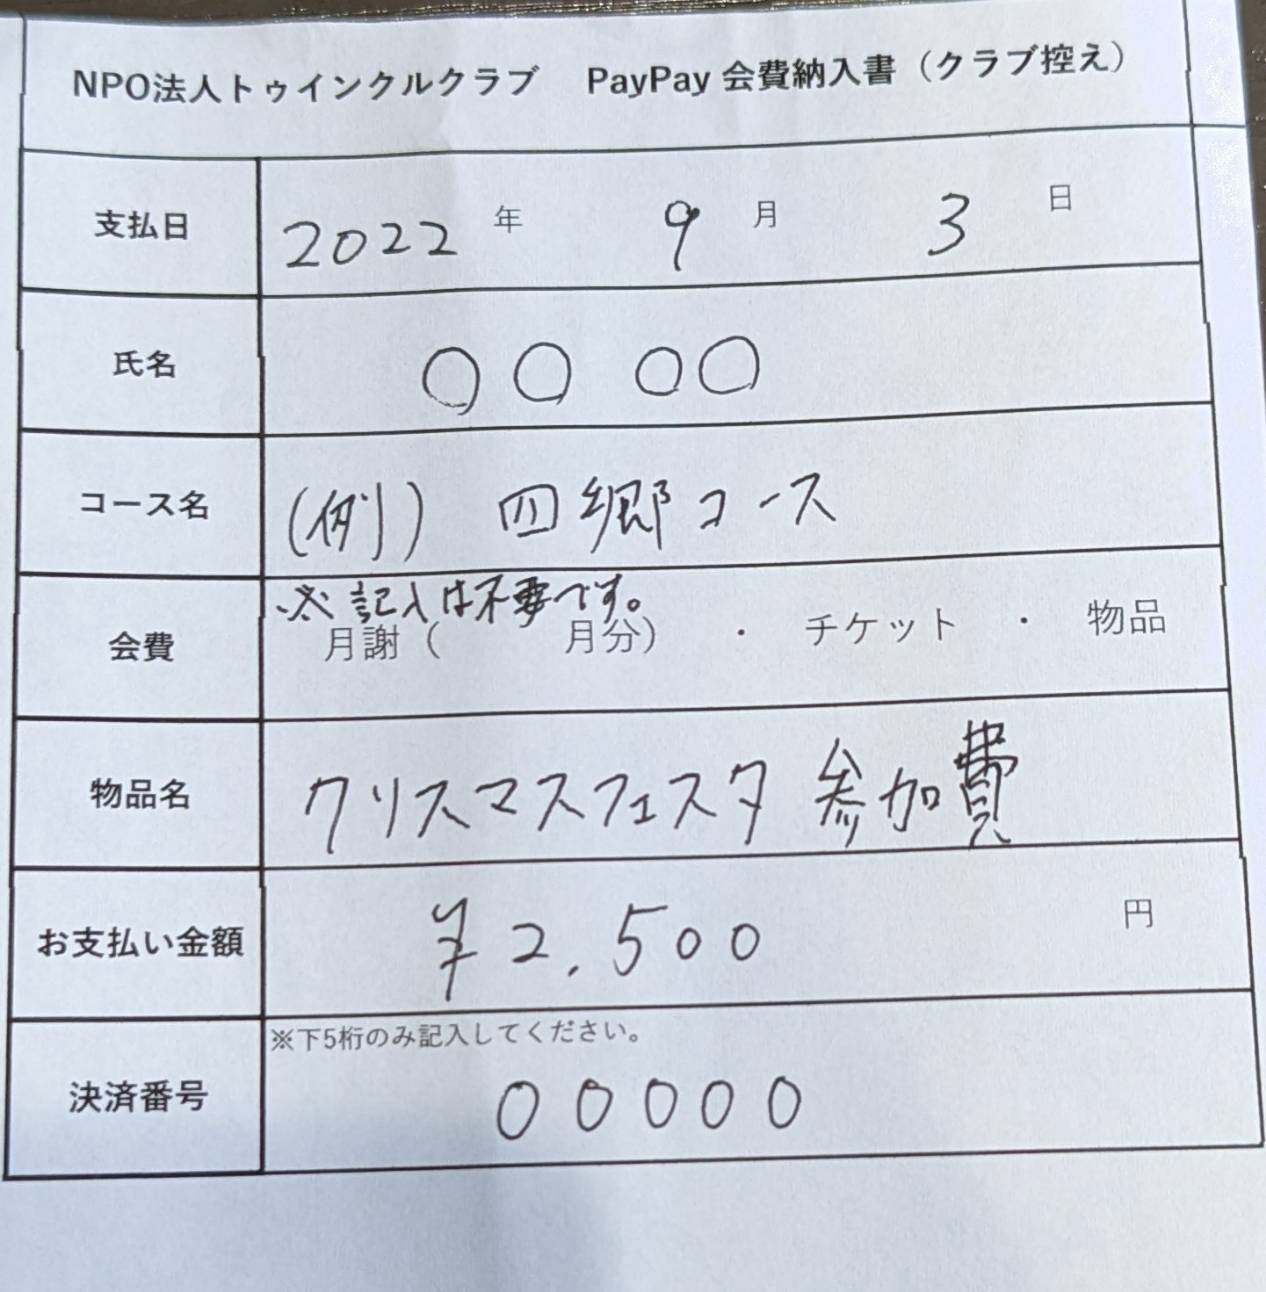 NPO法人トゥインクルクラブ　PayPay 会費納入書（クラブ控え）
支払日 2022 年 9 月 3 日
氏名 〇〇 〇〇
コース名 (例) 四郷コース
※記入は不要です。
会費 月謝（　　月分）・ チケット ・ 物品
物品名 クリスマスフェスタ 参加費
お支払い金額 ¥2,500 円
※下5桁のみ記入してください。
決済番号 00000